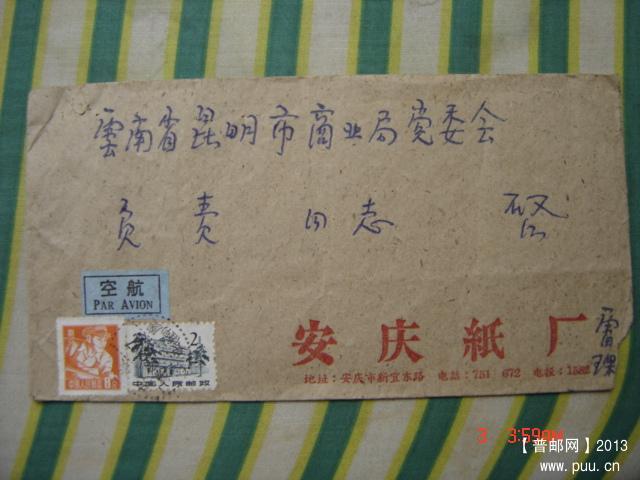 雲南省昆明市商业局党委会
负责同志 啓
空航
PAR AVION
8分
2分
中国人民邮政
安庆紙厂
地址：安庆市新宜东路 电話：751 672 电报：1582
雷
3 3:59AM
【普邮网】2013
www.puu.cn